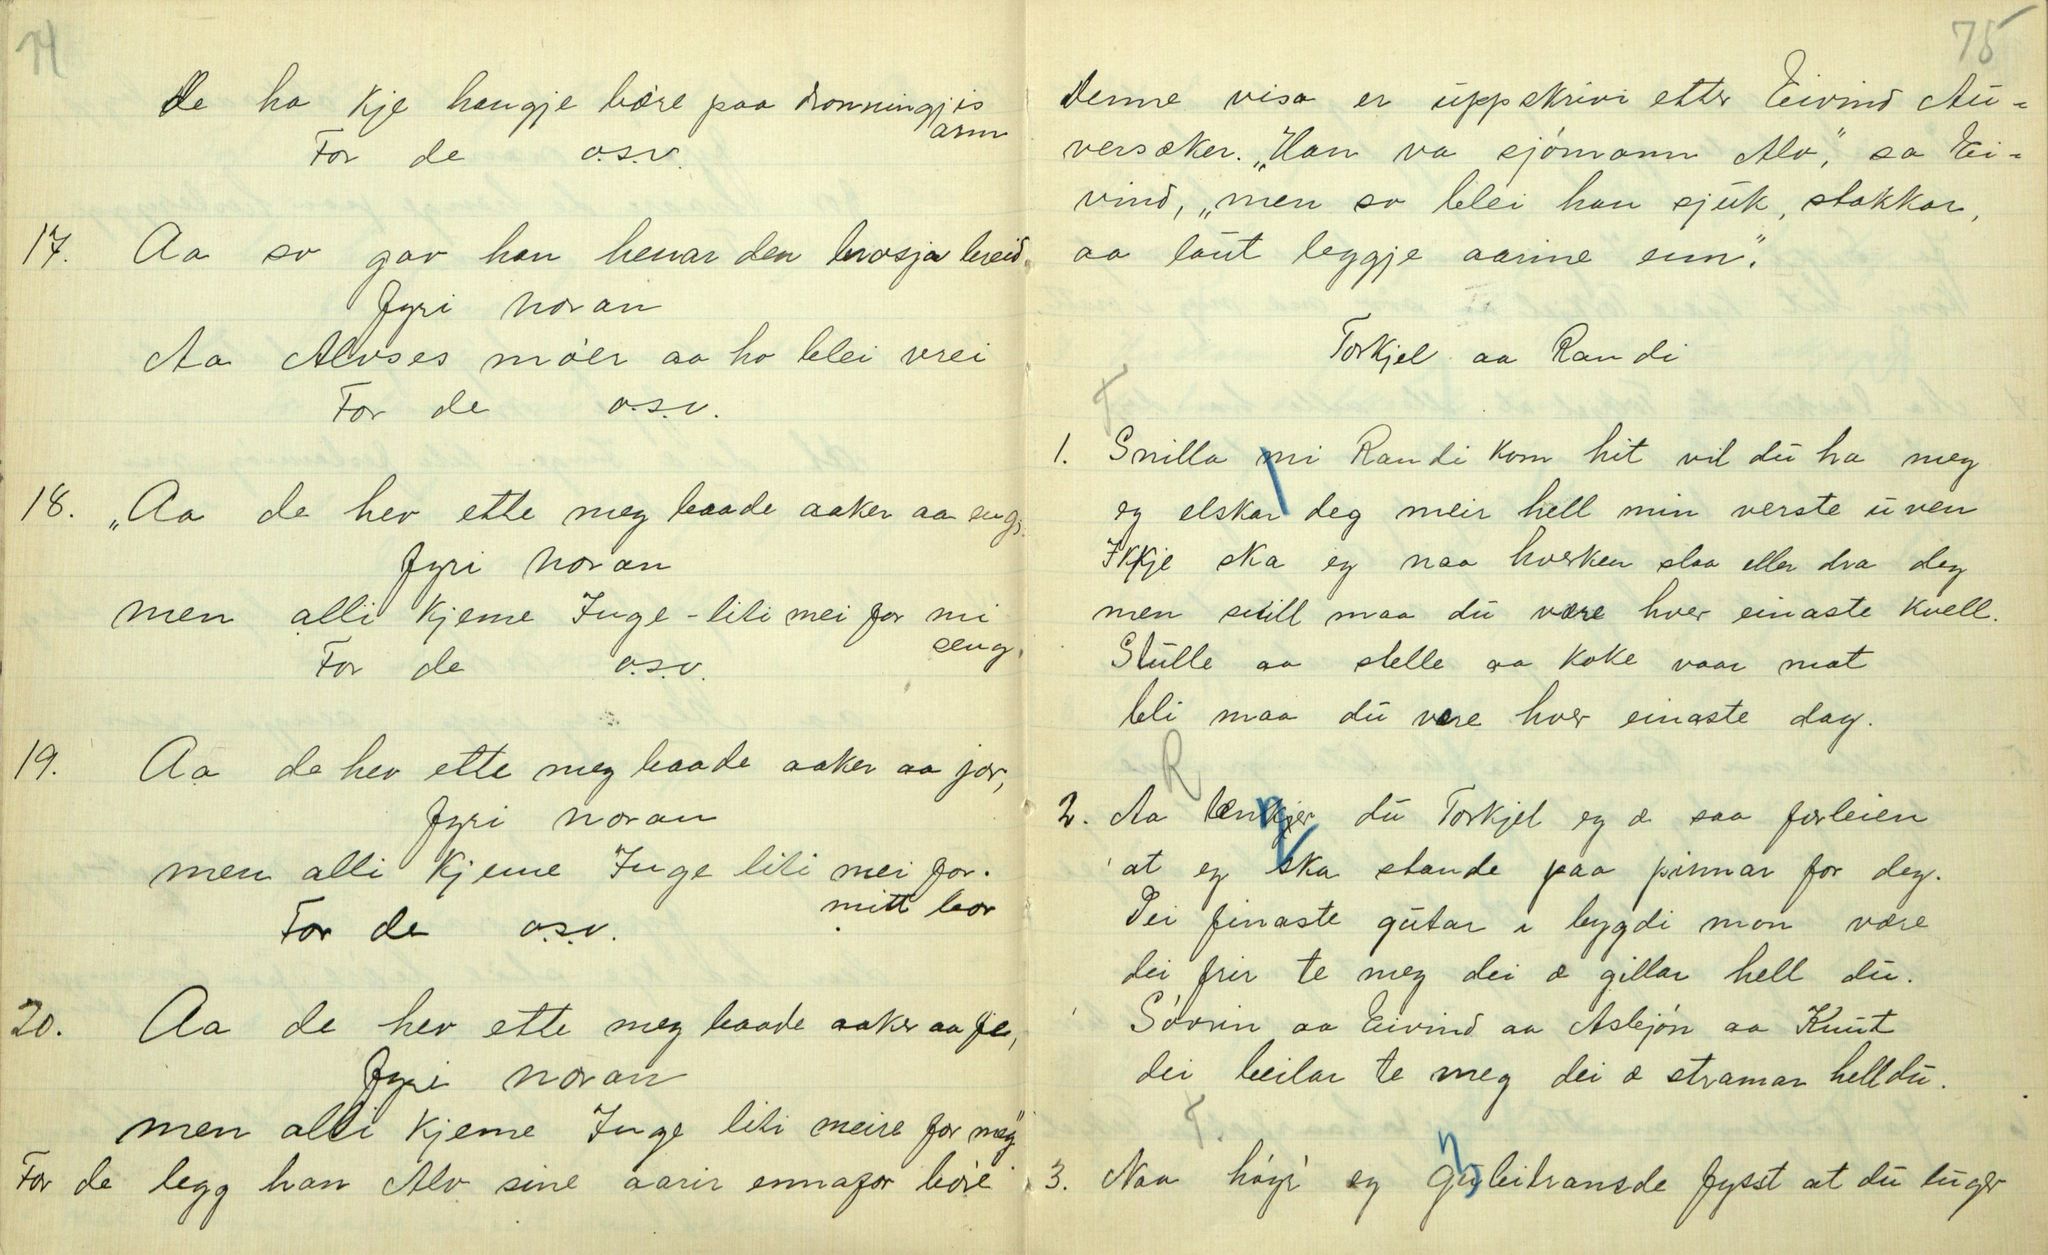 74
De ha kje hangje bære paa dronningjis
arm
For de o.s.v.
17. Aa so gav han henar den brosja breid,
fyri noran
Aa Alvses móer aa ho blei vrei
For de o.s.v.
18. „Aa de hev ette meg baade aaker aa eng,
fyri noran
men alli kjeme Inge-liti mei for mi
seng,
For de o.s.v.
19. Aa de hev ette meg baade aaker aa jor,
fyri noran
men alli kjeme Inge liti mei for
mitt bor
For de o.s.v.
20. Aa de hev ette meg baade aaker aa fe,
fyri noran
men alli kjeme Inge liti meire for meg"
For de legg han Alv sine aarir ennafor bóre
75
Denne visa er uppskrivi etter Eivind Au-
versaker. „Han va sjómann Alv", sa Ei-
vind, „men so blei han sjuk, stakkar,
aa laut leggje aarine inn".
Torkjel aa Randi
T
1. Snilla mi Randi kom hit vil du ha meg
eg elskar deg meir hell min verste uven
Ikkje ska eg naa hverken slaa eller dra deg
men snill maa du være hver einaste kvell.
Stulle aa stelle aa koke vaar mat
bli maa du være hver einaste dag.
R
2. Aa tænkjer du Torkjel eg æ saa forleien
at eg ska stande paa pinnar for deg.
Dei finaste gutar i bygdi mon være
dei frir te meg dei æ gillar hell du.
Sóvrin aa Eivind aa Asbjón aa Knut
dei beilar te meg dei æ stramar hell du.
T.
3. Naa hóyr eg guleitransde fysst at du ljuger